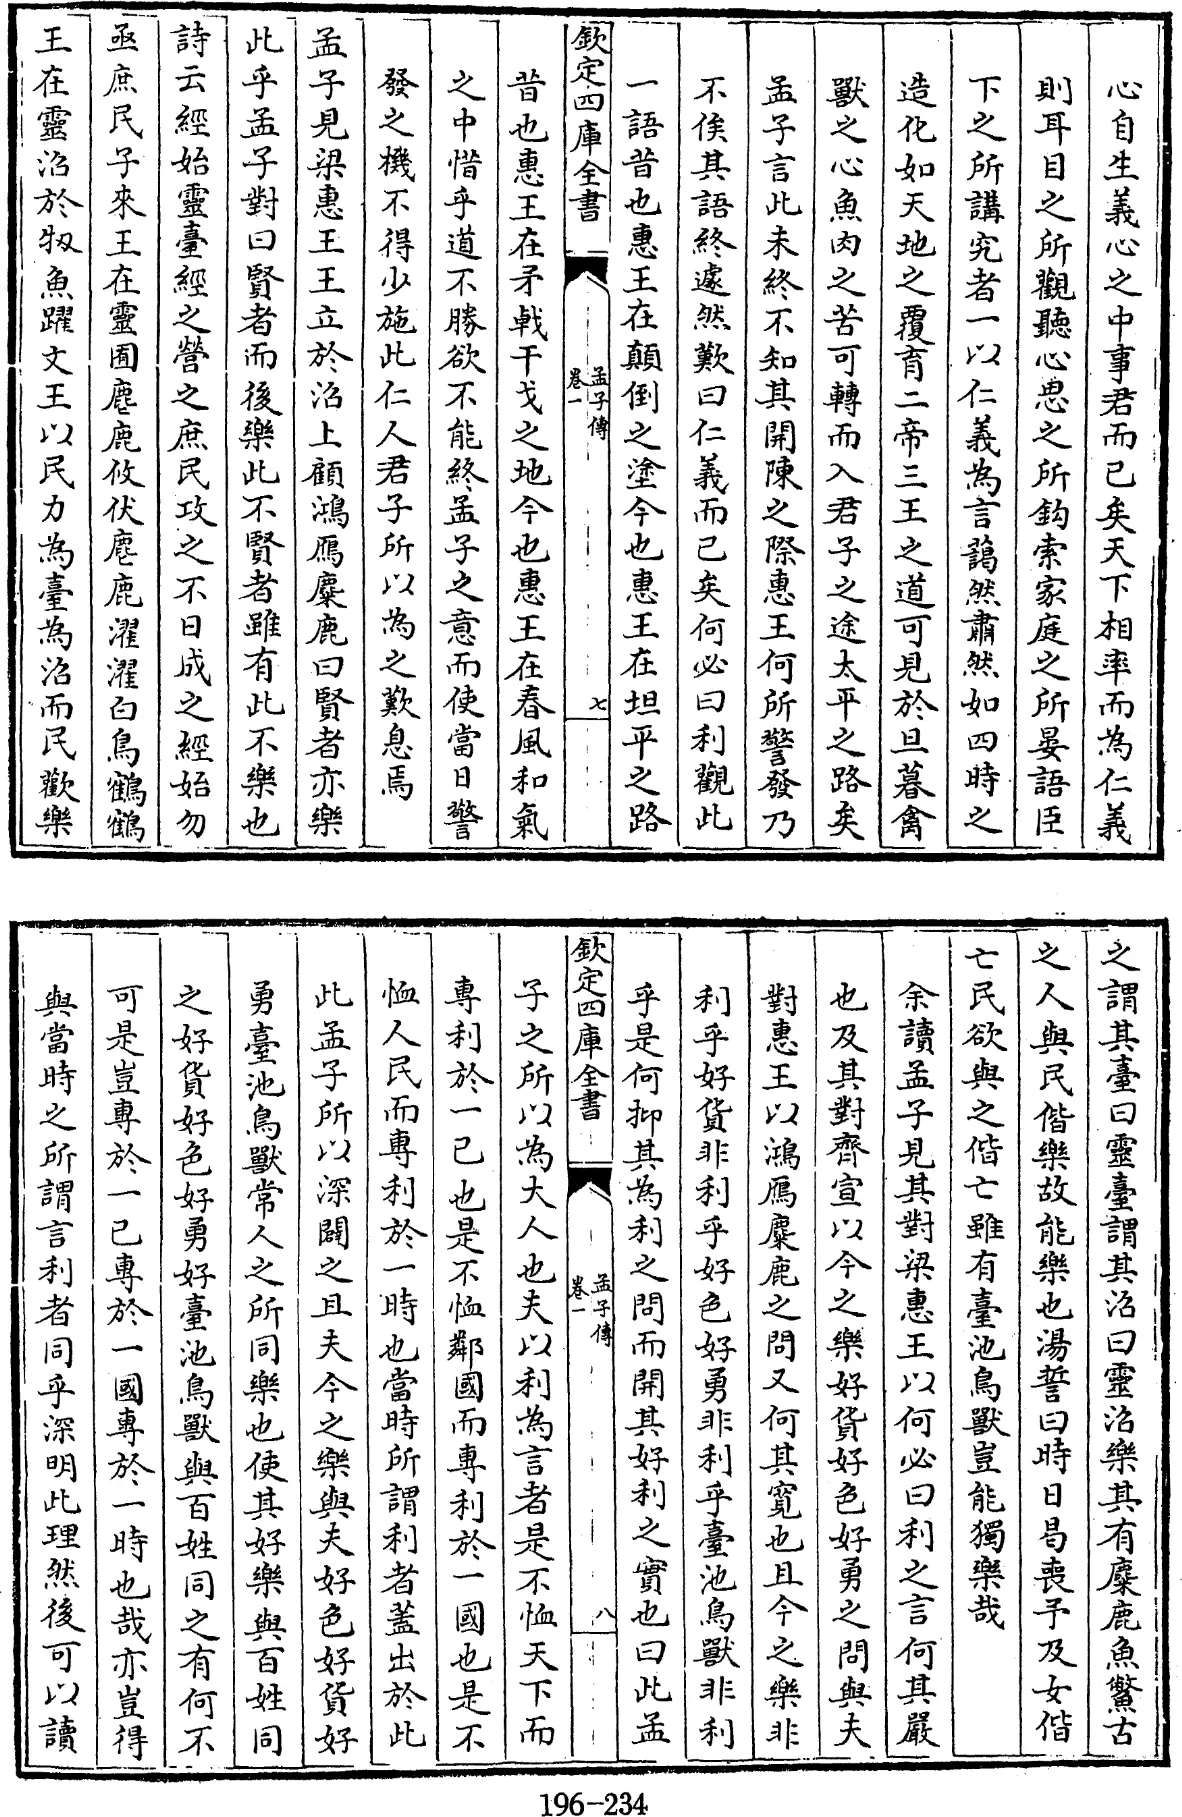 心自生義心之中事君而已矣天下相率而為仁義
則耳目之所觀聽心思之所鈎索家庭之所晏語臣
下之所講究者一以仁義為言藹然肅然如四時之
造化如天地之覆育二帝三王之道可見於旦暮禽
獸之心魚肉之苦可轉而入君子之途太平之路矣
孟子言此未終不知其開陳之際惠王何所警發乃
不俟其語終遽然歎曰仁義而已矣何必曰利觀此
一語昔也惠王在顛倒之塗今也惠王在坦平之路
欽定四庫全書
孟子傳
卷一
七
昔也惠王在矛戟干戈之地今也惠王在春風和氣
之中惜乎道不勝欲不能終孟子之意而使當日警
發之機不得少施此仁人君子所以為之歎息焉
孟子見梁惠王王立於沼上顧鴻鴈麋鹿曰賢者亦樂
此乎孟子對曰賢者而後樂此不賢者雖有此不樂也
詩云經始靈臺經之營之庶民攻之不日成之經始勿
亟庶民子來王在靈囿麀鹿攸伏麀鹿濯濯白鳥鶴鶴
王在靈沼於牣魚躍文王以民力為臺為沼而民歡樂
之謂其臺曰靈臺謂其沼曰靈沼樂其有麋鹿魚鱉古
之人與民偕樂故能樂也湯誓曰時日曷喪予及女偕
亡民欲與之偕亡雖有臺池鳥獸豈能獨樂哉
余讀孟子見其對梁惠王以何必曰利之言何其嚴
也及其對齊宣以今之樂好貨好色好勇之問與夫
對惠王以鴻鴈麋鹿之問又何其寛也且今之樂非
利乎好貨非利乎好色好勇非利乎臺池鳥獸非利
乎是何抑其為利之問而開其好利之實也曰此孟
欽定四庫全書
孟子傳
卷一
八
子之所以為大人也夫以利為言者是不恤天下而
專利於一已也是不恤鄰國而專利於一國也是不
恤人民而專利於一時也當時所謂利者蓋出於此
此孟子所以深闢之且夫今之樂與夫好色好貨好
勇臺池鳥獸常人之所同樂也使其好樂與百姓同
之好貨好色好勇好臺池鳥獸與百姓同之有何不
可是豈專於一已專於一國專於一時也哉亦豈得
與當時之所謂言利者同乎深明此理然後可以讀
196-234